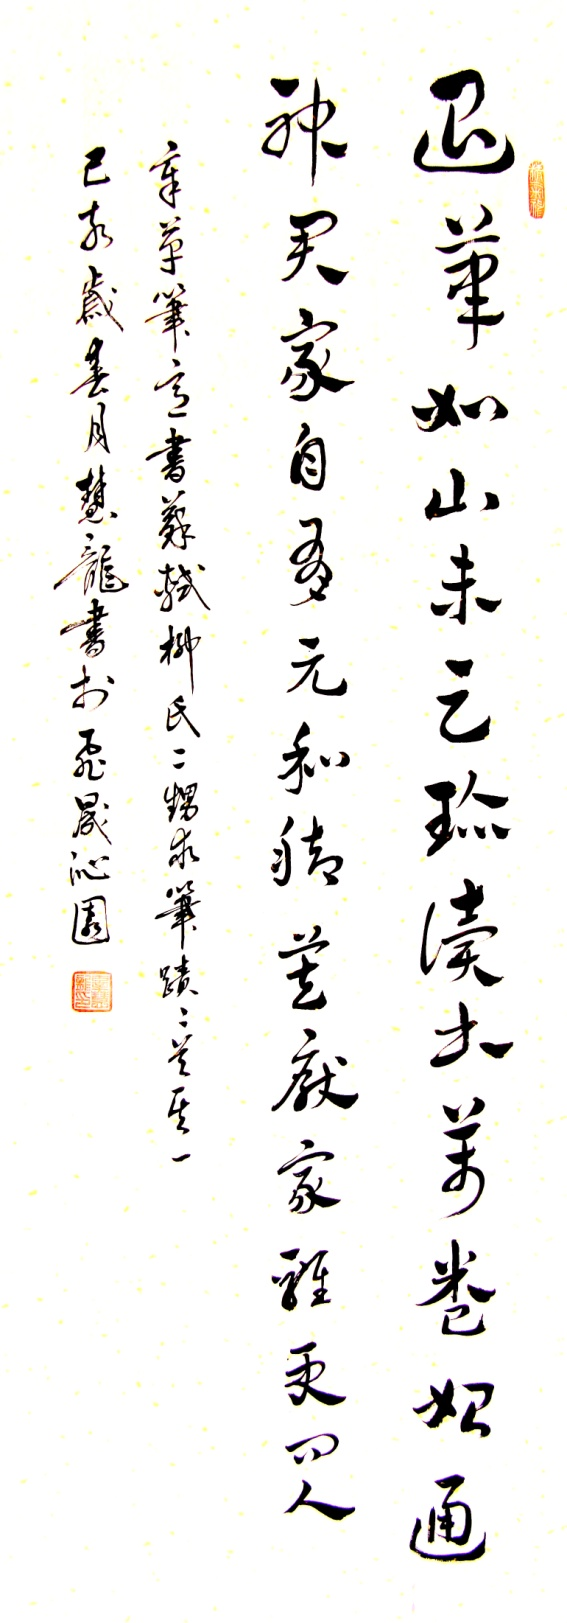 退筆如山未足珎讀書萬卷始通
神君家自有元和腳莫厭家雞更問人
章草筆意書蘇軾柳氏二甥求筆蹟二首其一
己亥歲春月慧龍書於飛晟沁園